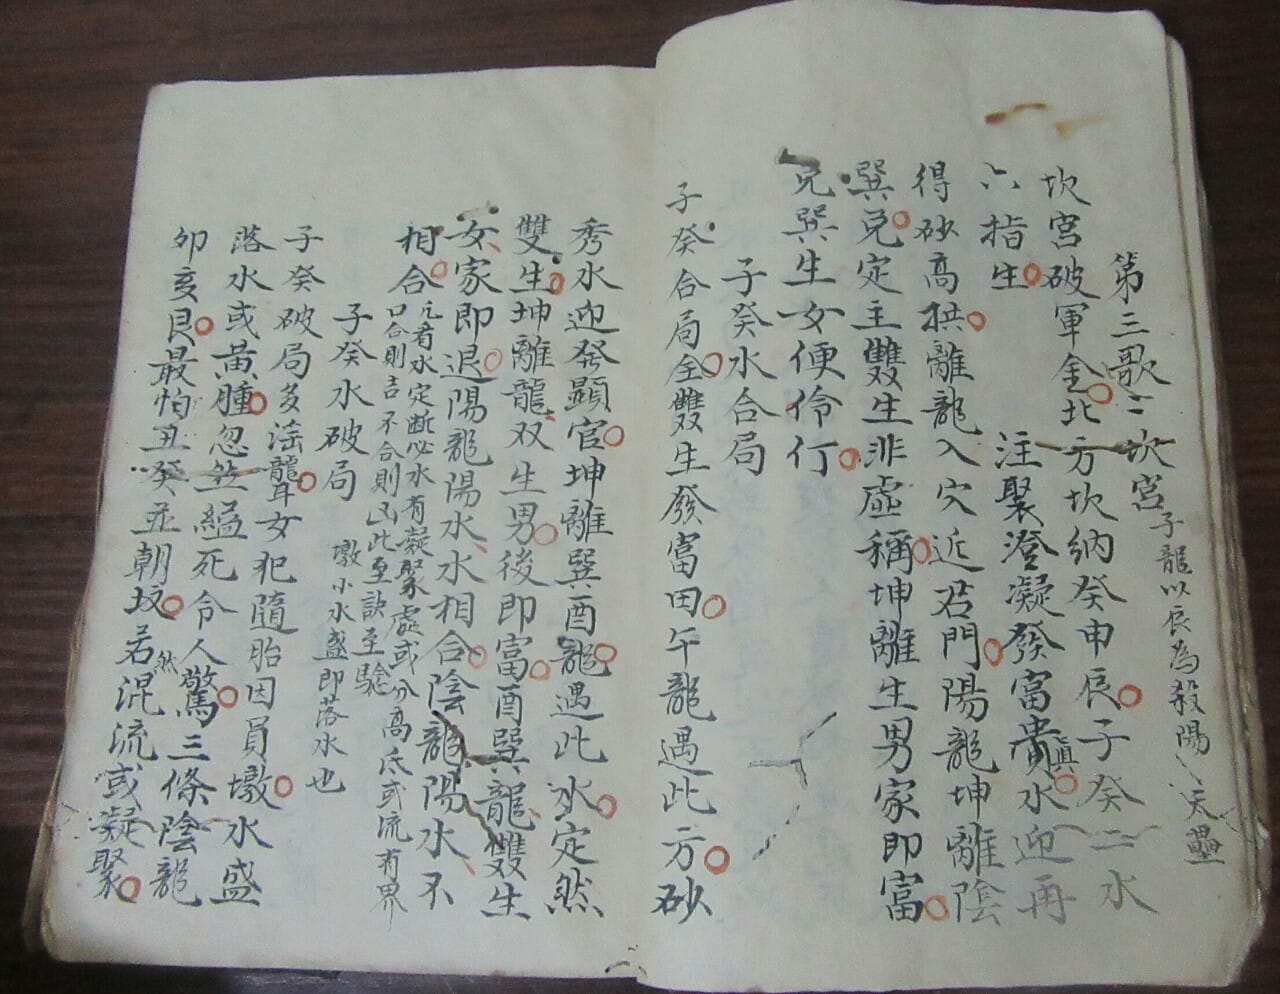 第三歌二坎宮子龍以辰為殺陽、、天罍
坎宮破軍金北方坎納癸申辰子癸二水
六指生　注聚澄凝發富貴真水迎再
得砂高拱離龍入穴近君門陽龍坤離陰
巽兌定主雙生非虛稱坤離生男家即富
兌巽生女便伶仃
子癸水合局
子癸合局全雙生發富田午龍遇此方砂
秀水迎發顯官坤離巽酉龍遇此水定然
雙生坤離龍双生男後即富酉巽龍雙生
女家即退陽龍陽水水相合陰龍陽水不
相合凡看水定斷必水有凝聚處或分高底或流有界
口合則吉不合則凶此至訣至驗
子癸水破局　墩小水盛即落水也
子癸破局多淫聾耳女犯隨胎因員墩水盛
落水或黃腫忽然縊死令人驚三條陰龍
卯亥艮最怕丑癸並朝坟若然混流或凝聚